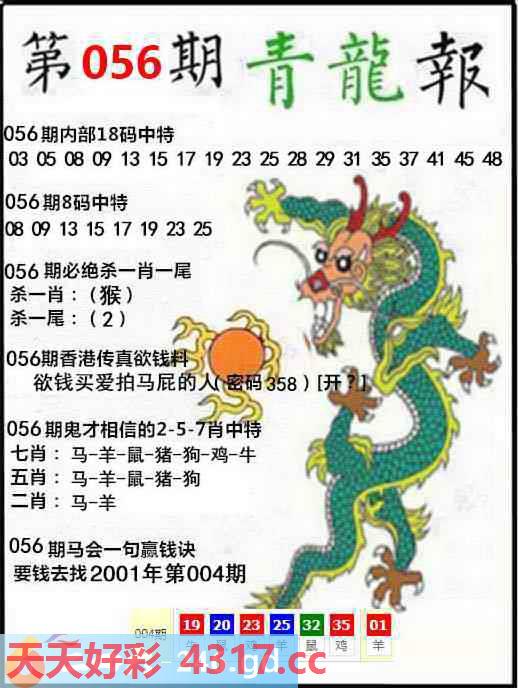 第056期青龍報
056期内部18码中特
03 05 08 09 13 15 17 19 23 25 28 29 31 35 37 41 45 48
056期8码中特
08 09 13 15 17 19 23 25
056期必绝杀一肖一尾
杀一肖：（猴）
杀一尾：（2）
056期香港传真欲钱料
欲钱买爱拍马屁的人(密码358）[开？]
056期鬼才相信的2-5-7肖中特
七肖：马-羊-鼠-猪-狗-鸡-牛
五肖：马-羊-鼠-猪-狗
二肖：马-羊
056期马会一句赢钱诀
要钱去找2001年第004期
004期 19 20 23 25 32 35 01
鸡 羊 鼠 鸡 羊
天天好彩 4317.cc